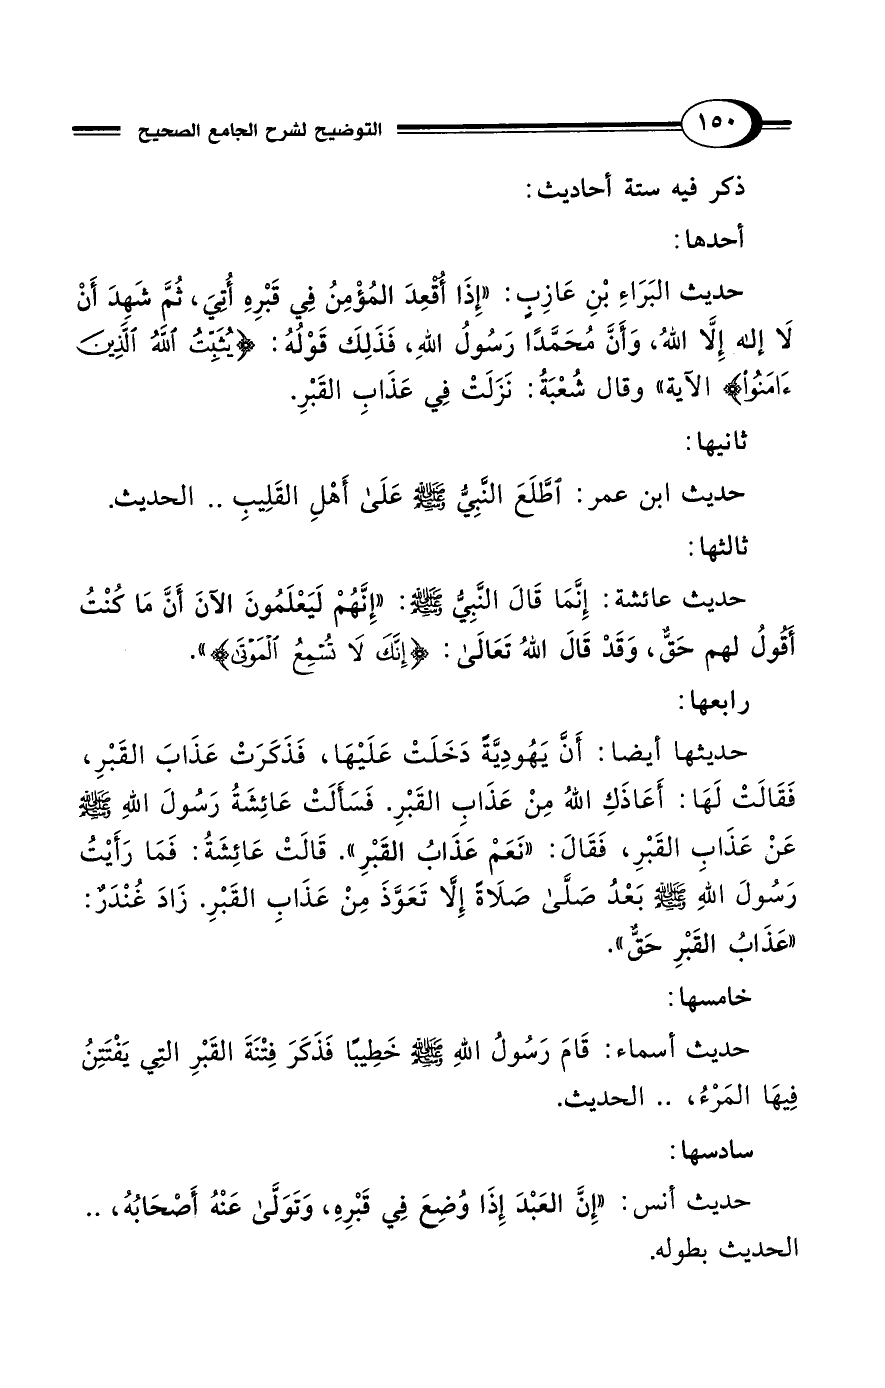 ١٥٠ التوضيح لشرح الجامع الصحيح
ذكر فيه ستة أحاديث:
أحدها:
حديث البَرَاءِ بْنِ عَازِبٍ: «إِذَا أُقْعِدَ المُؤْمِنُ فِي قَبْرِهِ أُتِيَ، ثُمَّ شَهِدَ أَنْ
لَا إله إِلَّا اللهُ، وَأَنَّ مُحَمَّدًا رَسُولُ اللهِ، فَذَلِكَ قَوْلُهُ: ﴿يُثَبِّتُ ٱللَّهُ ٱلَّذِينَ
ءَامَنُواْ﴾ الآية» وقال شُعْبَةُ: نَزَلَتْ فِي عَذَابِ القَبْرِ.
ثانيها:
حديث ابن عمر: ٱطَّلَعَ النَّبِيُّ ﷺ عَلَىٰ أَهْلِ القَلِيبِ .. الحديث.
ثالثها:
حديث عائشة: إِنَّمَا قَالَ النَّبِيُّ ﷺ: «إِنَّهُمْ لَيَعْلَمُونَ الآنَ أَنَّ مَا كُنْتُ
أَقُولُ لهم حَقٌّ، وَقَدْ قَالَ اللهُ تَعَالَىٰ: ﴿إِنَّكَ لَا تُسْمِعُ ٱلْمَوْتَىٰ﴾».
رابعها:
حديثها أيضا: أَنَّ يَهُودِيَّةً دَخَلَتْ عَلَيْهَا، فَذَكَرَتْ عَذَابَ القَبْرِ،
فَقَالَتْ لَهَا: أَعَاذَكِ اللهُ مِنْ عَذَابِ القَبْرِ. فَسَأَلَتْ عَائِشَةُ رَسُولَ اللهِ ﷺ
عَنْ عَذَابِ القَبْرِ، فَقَالَ: «نَعَمْ عَذَابُ القَبْرِ». قَالَتْ عَائِشَةُ: فَمَا رَأَيْتُ
رَسُولَ اللهِ ﷺ بَعْدُ صَلَّىٰ صَلَاةً إِلَّا تَعَوَّذَ مِنْ عَذَابِ القَبْرِ. زَادَ غُنْدَرٌ:
«عَذَابُ القَبْرِ حَقٌّ».
خامسها:
حديث أسماء: قَامَ رَسُولُ اللهِ ﷺ خَطِيبًا فَذَكَرَ فِتْنَةَ القَبْرِ التِي يَفْتَتِنُ
فِيهَا المَرْءُ، .. الحديث.
سادسها:
حديث أنس: «إِنَّ العَبْدَ إِذَا وُضِعَ فِي قَبْرِهِ، وَتَوَلَّىٰ عَنْهُ أَصْحَابُهُ، ..
الحديث بطوله.